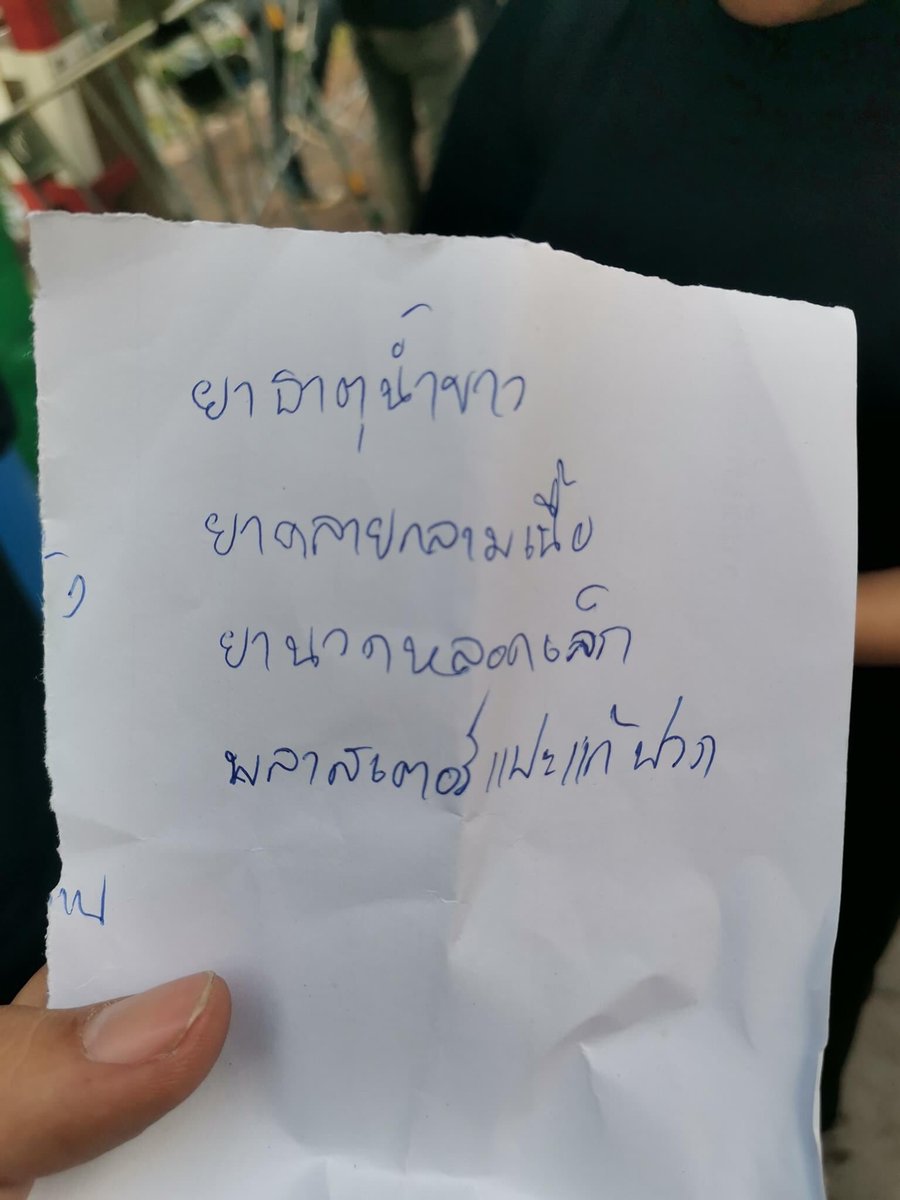 ยาธาตุน้ำขาว
ยาคลายกลามเนื้อ
ยานวดหลอดเล็ก
พลาสเตอร์แปะแก้ปวด